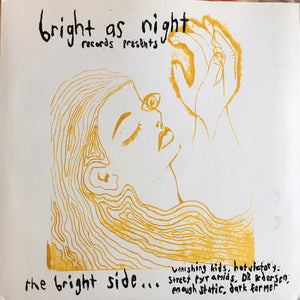 bright as night
records presents
the bright side...
vanishing kids, hotvictory,
street pyramids, DB Pedersen,
enough static, dark farmer